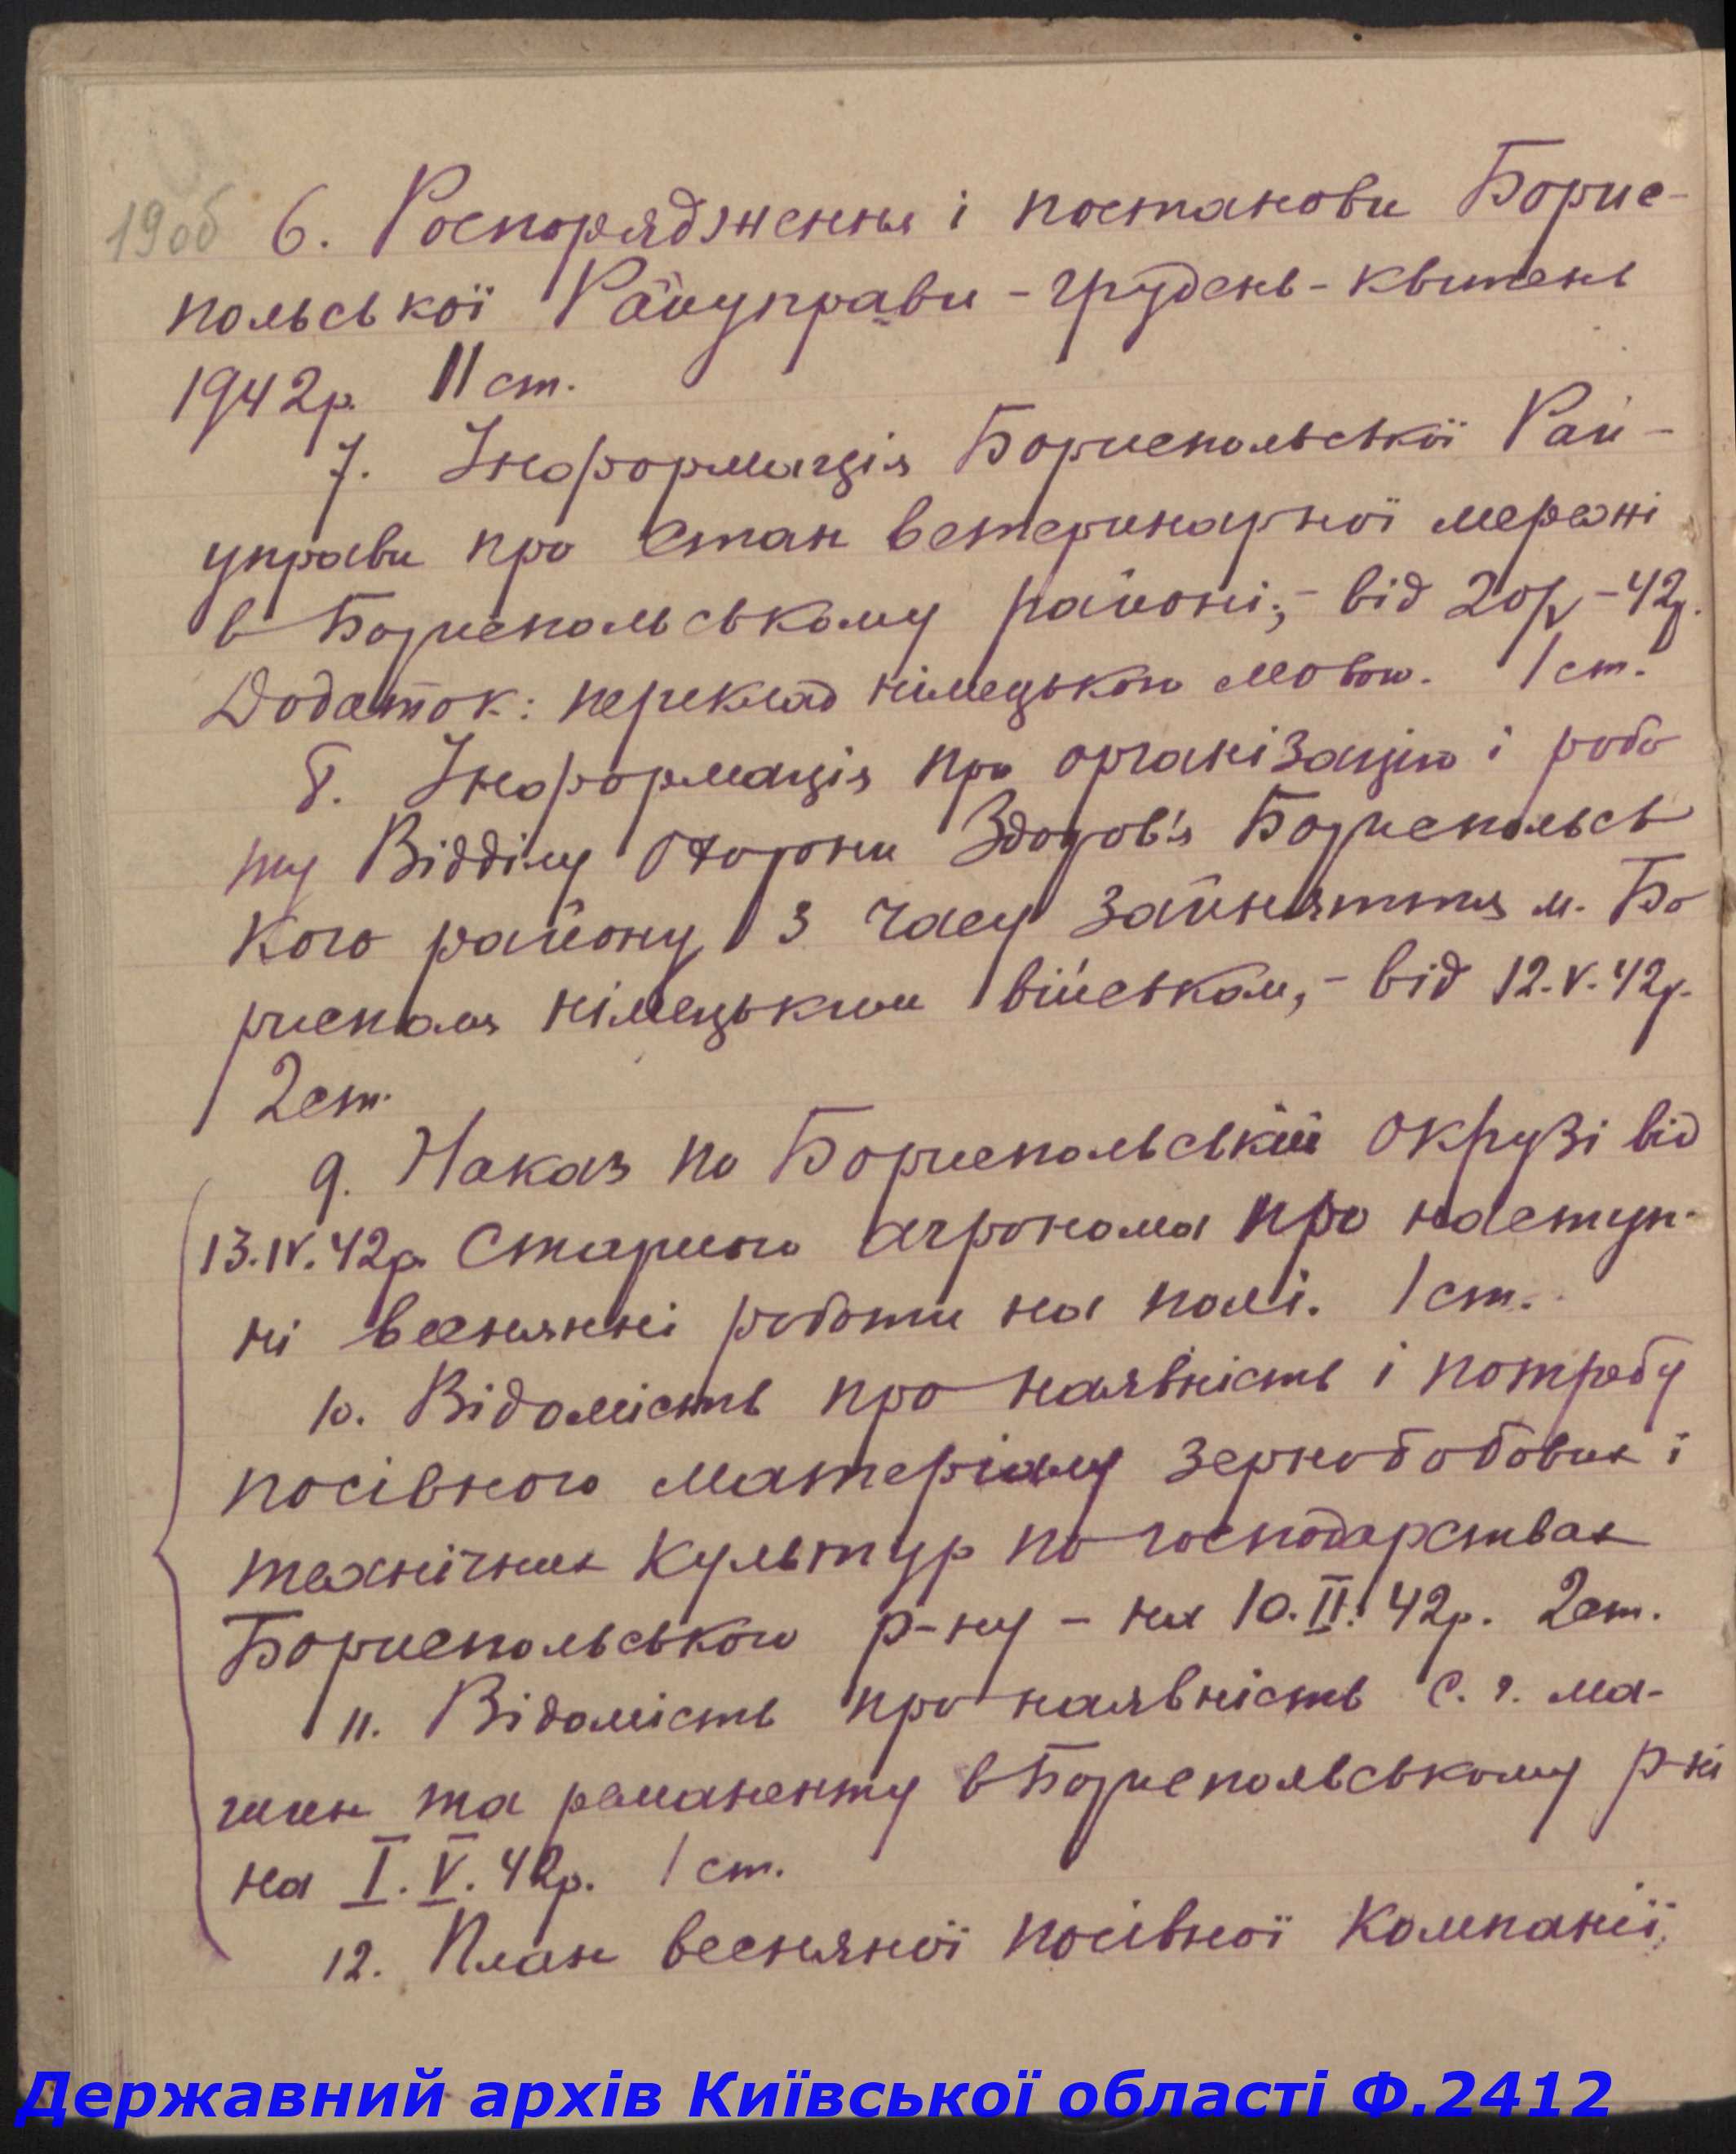 19об
6. Роспорядження і постанови Борис-
польської Райуправи - грудень - квитень
1942р. 11 ст.
7. Інформація Бориспольської Рай-
управи про стан ветеринарної мережі
в Бориспольському районі, - від 20/V - 42р.
Додаток: переклад німецькою мовою. 1 ст.
8. Інформація про організацію і робо
ту Відділу Охорони Здоров'я Бориспольсь
кого району з часу зайняття м. Бо
рисполя німецьким військом, - від 12.V.42р.
2 ст.
9. Наказ по Бориспольській округі від
13.IV.42р. Старшого агронома про наступ-
ні весняні роботи на полі. 1 ст.
10. Відомість про наявність і потребу
посівного матеріалу зернобобових і
технічних культур по господарствах
Бориспольського р-ну - на 10.II.42р. 2 ст.
11. Відомість про наявність с. г. ма-
шин та реманенту в Бориспольському р-ні
на I.V.42р. 1 ст.
12. План весняної посівної компанії,
Державний архів Київської області Ф.2412